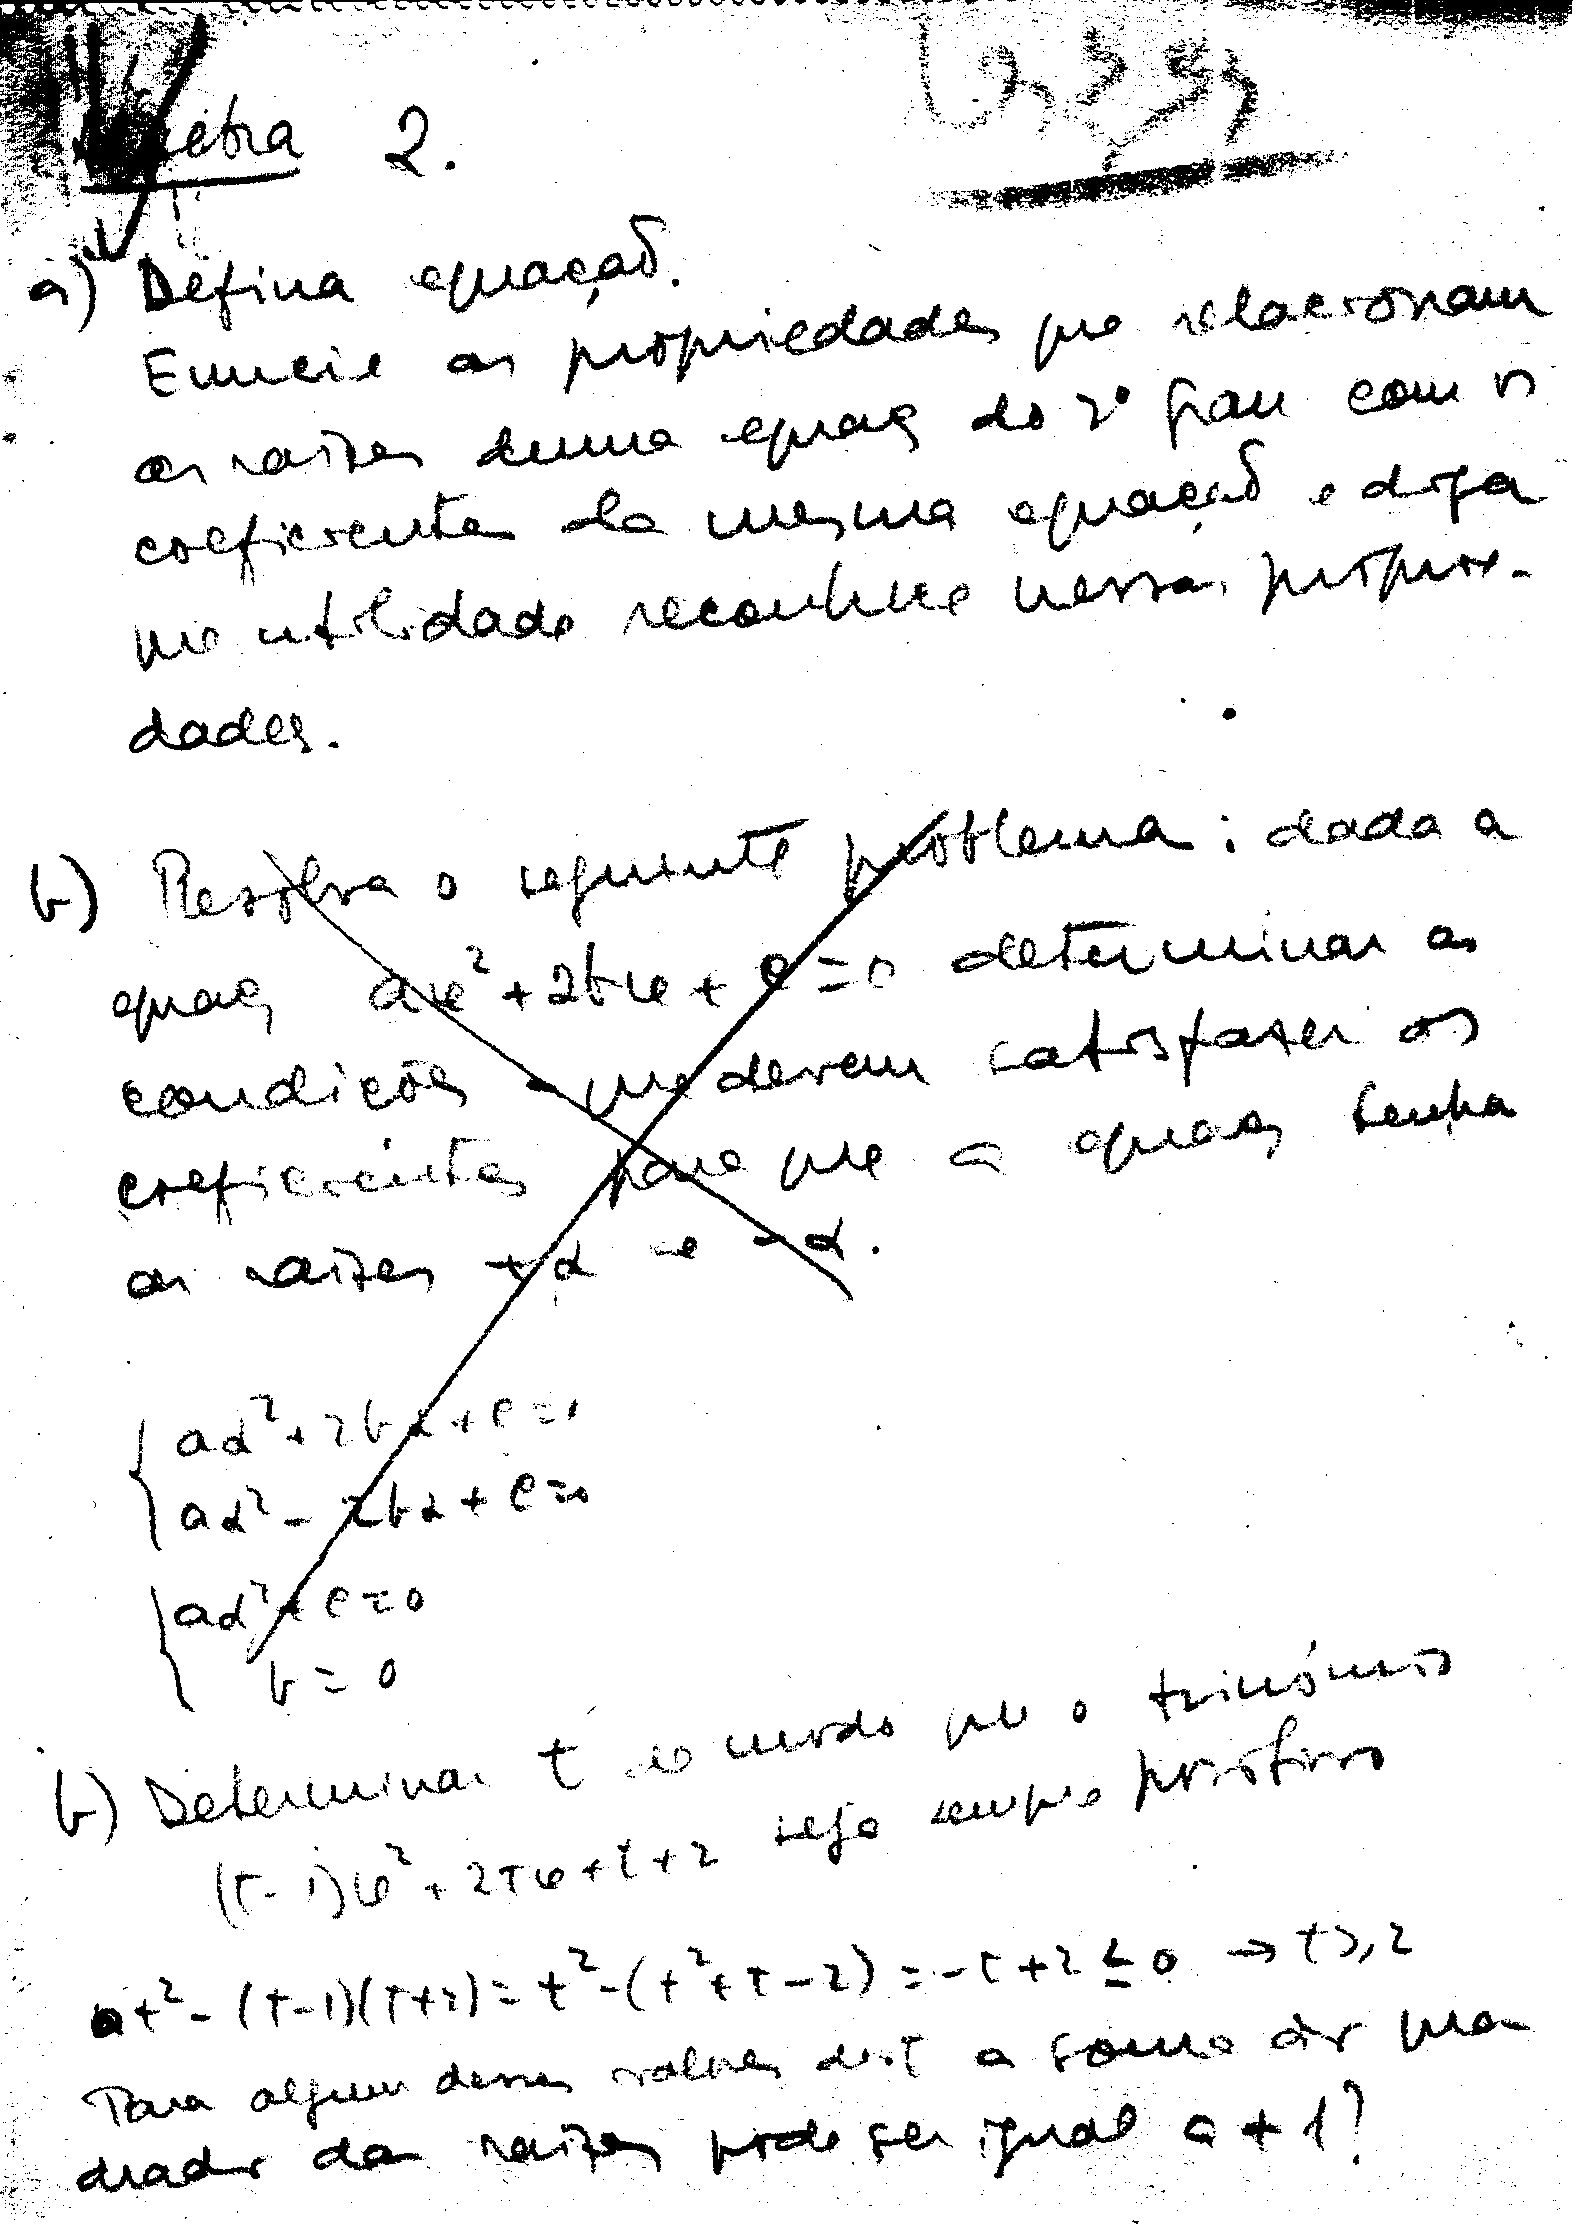 Algebra 2.
a) Defina equação.
Enuncie as propriedades que relacionam
as raizes duma equaç do 2º grau com os
coeficientes da mesma equação e diga
que utilidade reconhece nessas proprie-
dades.
b) Resolva o seguinte problema: dada a
equaç ax²+2bx+c=0 determinar as
condições que devem satisfazer os
coeficientes para que a equaç tenha
as raizes +α e -α.
aα²+2bα+c=0
aα²-2bα+c=0
aα²+c=0
b=0
b) Determinar t de modo que o trinómio
(t-1)x²+2tx+t+2 seja sempre positivo
t²-(t-1)(t+2)=t²-(t²+t-2)=-t+2≤0 → t≥2
Para algum desses valores de t a soma dos qua
drados das raizes pode ser igual a +1?